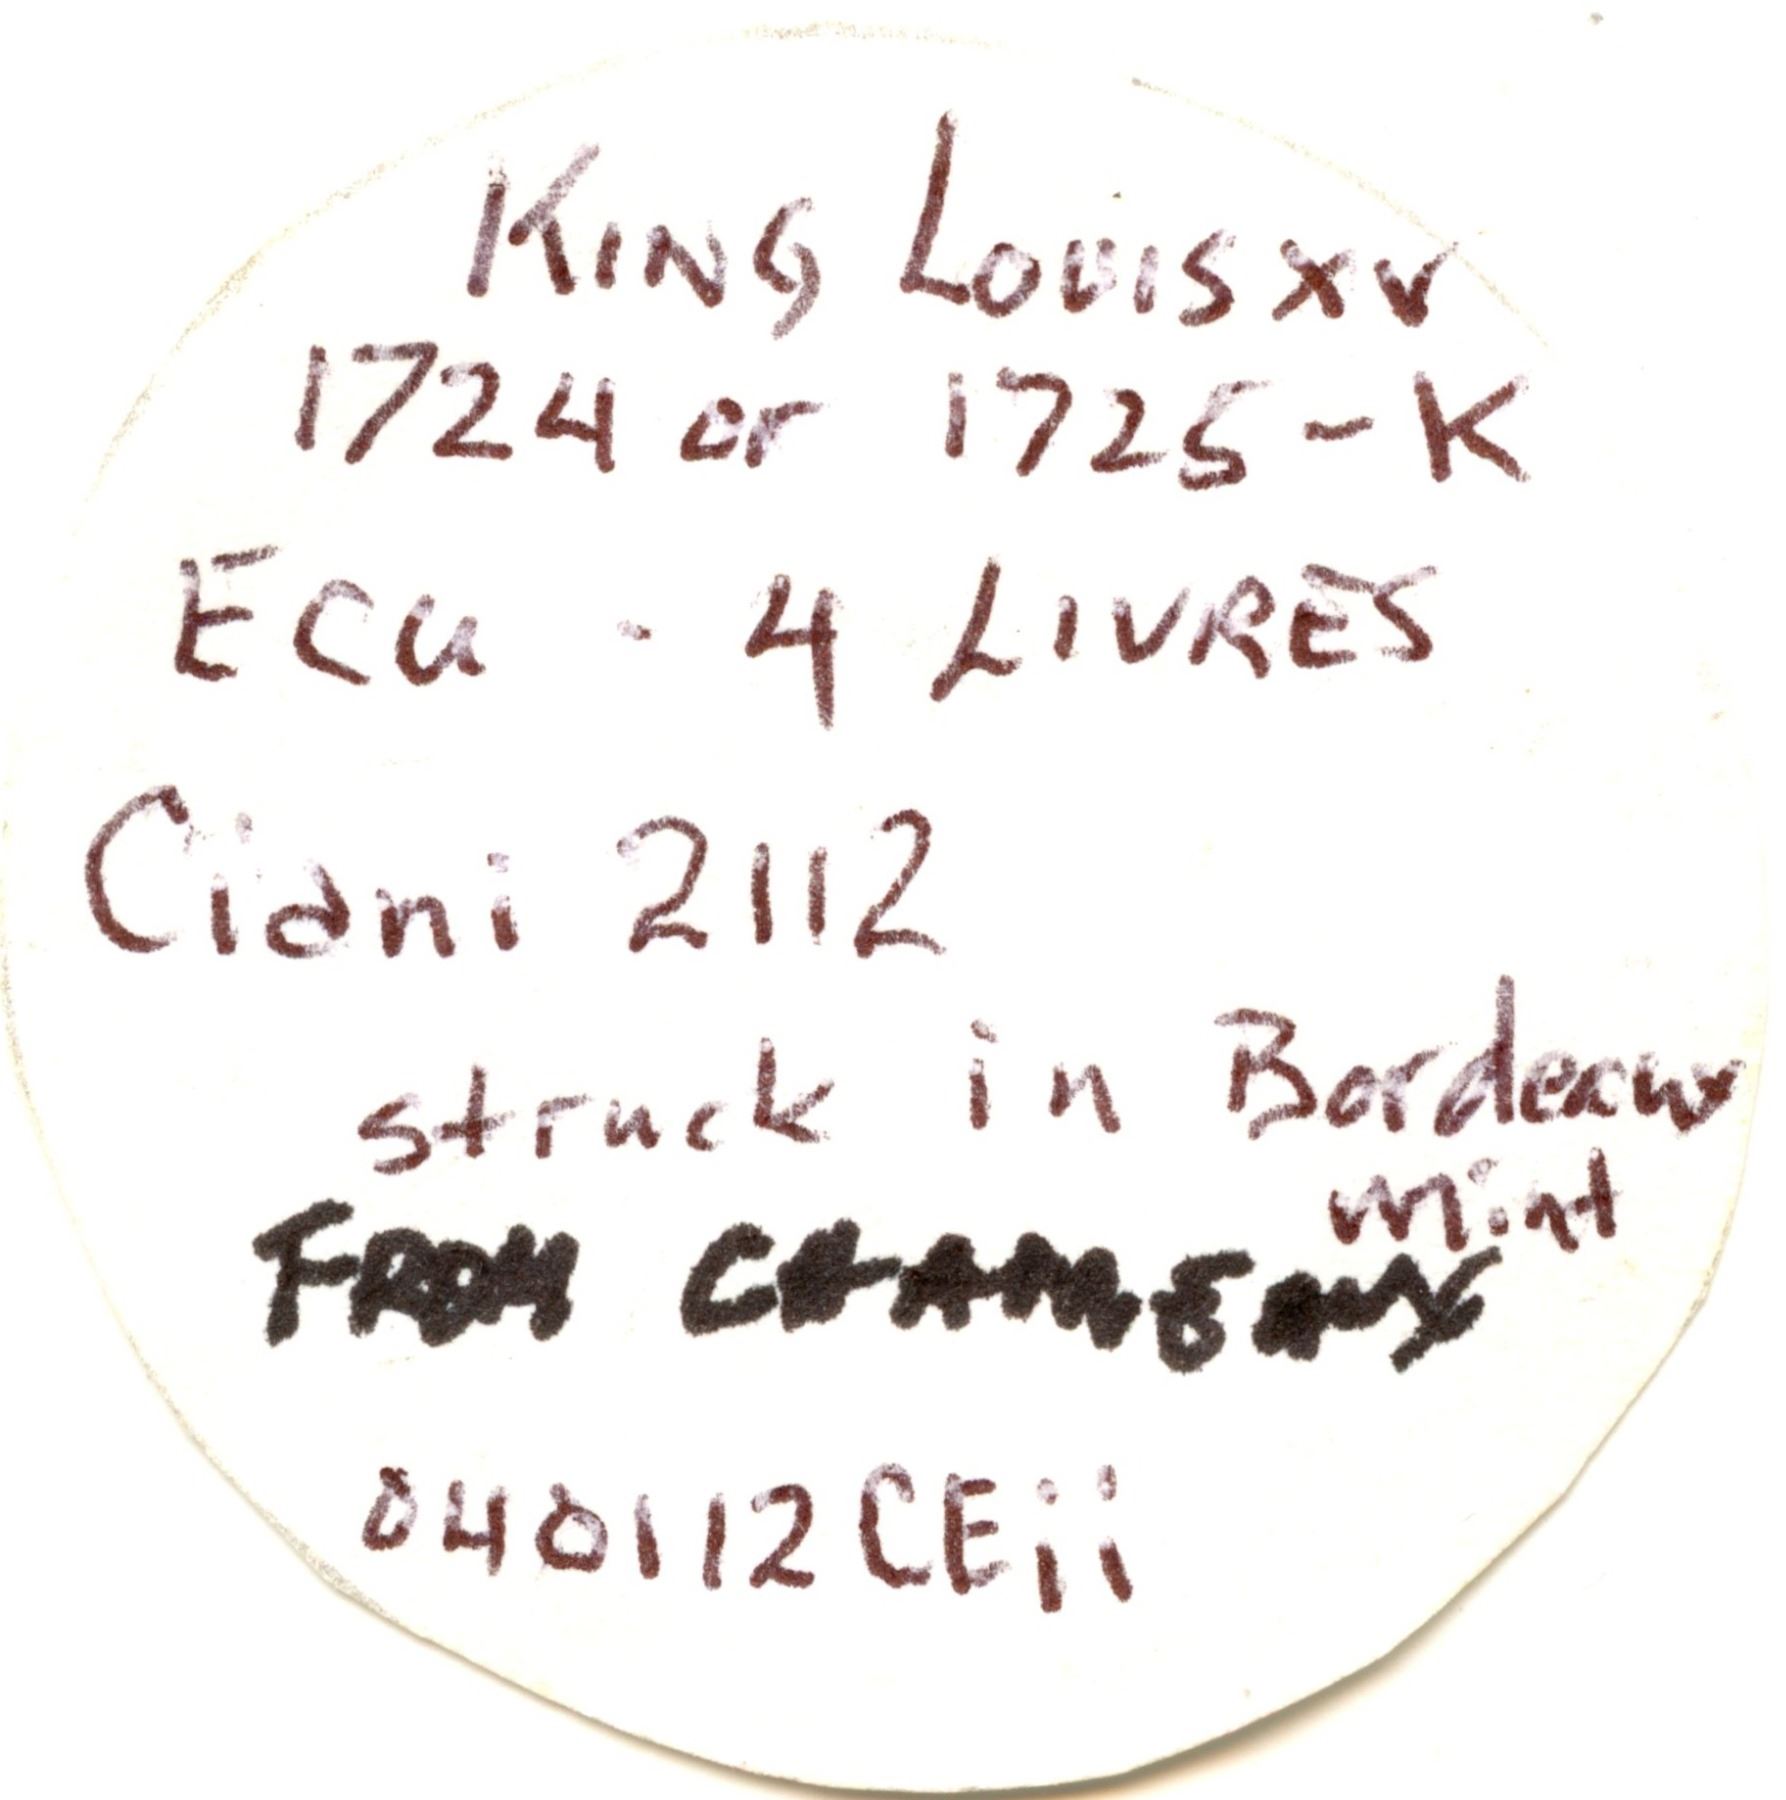 KING LOUIS XV
1724 or 1725 - K
ECU - 4 LIVRES
Ciani 2112
struck in Bordeaux
mint
FROM CHAMEAUX
040112CEii